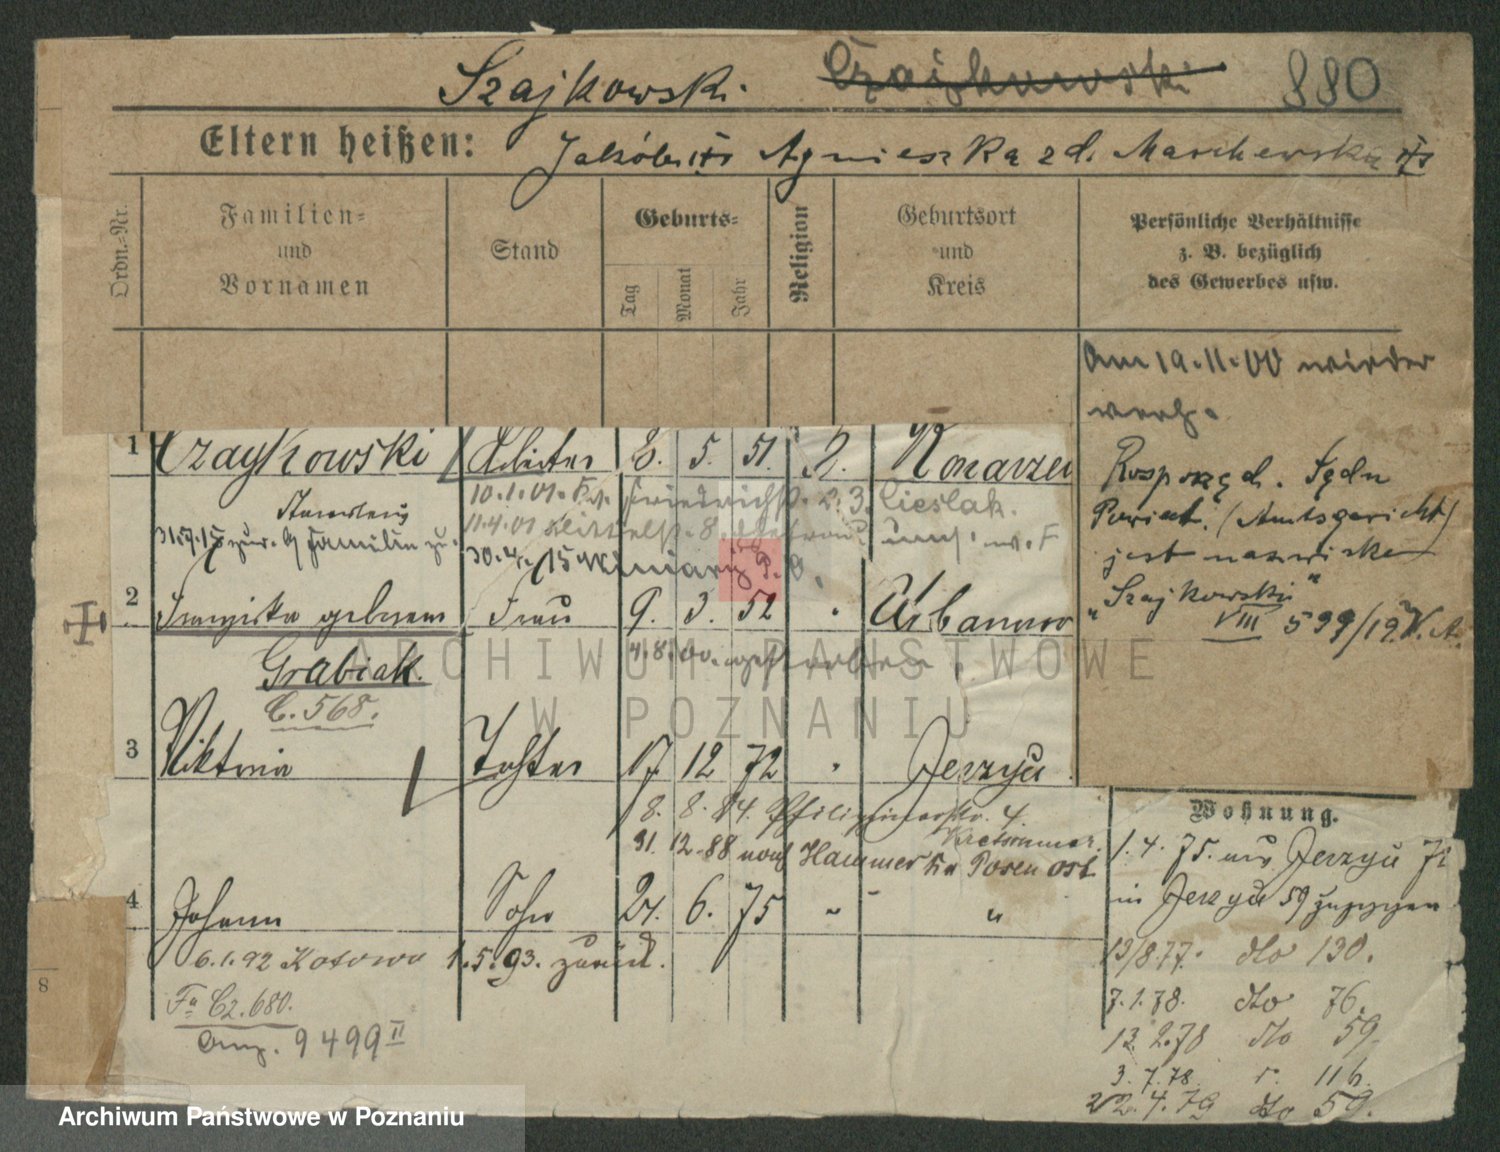 Szajkowski. Czajkowski 880
Eltern heißen: Jakób Agnieszka zd. Marchewska
Ordn.=Nr. Familien= und Vornamen Stand Geburts= Tag Monat Jahr Religion Geburtsort und Kreis Persönliche Verhältnisse z. B. bezüglich des Gewerbes usw.
Am 19.11.00 wieder
verh.
Rosporząd. Sądu
Powiat. (Amtsgericht)
jest nazwisko
"Szajkowski"
VIII 599/19
1 Czaykowski Arbeiter 8. 5. 51. K. Konarzew
10.1.01. Friedrichstr. 23. Cieslak.
11.4.01
30.4.15
2 Franziska geborene Frau 9. 3. 52 Urbanowo
Grabiak. 4.8.00. gestorben.
C. 568.
3 Viktoria Tochter 17 12 72 Jerzyce
8. 8. 84. 4.
Kretschmer.
31. 12. 88 nach Hammer Kr. Posen Ost
4 Johann Sohn 24. 6. 75 "
6.1.92 Kotowo 1.5.93. zurück.
Fa Cz. 680.
Anz. 9499 II
8
Wohnung.
1.4.75. aus Jerzyce 72
in Jerzyce 59 zugezogen
13/8.77. dto 130.
7.1.78. dto 76.
13.2.78 dto 59.
3.7.78. r. 116.
22.4.79 dto 59.
ARCHIWUM PAŃSTWOWE
W POZNANIU
Archiwum Państwowe w Poznaniu